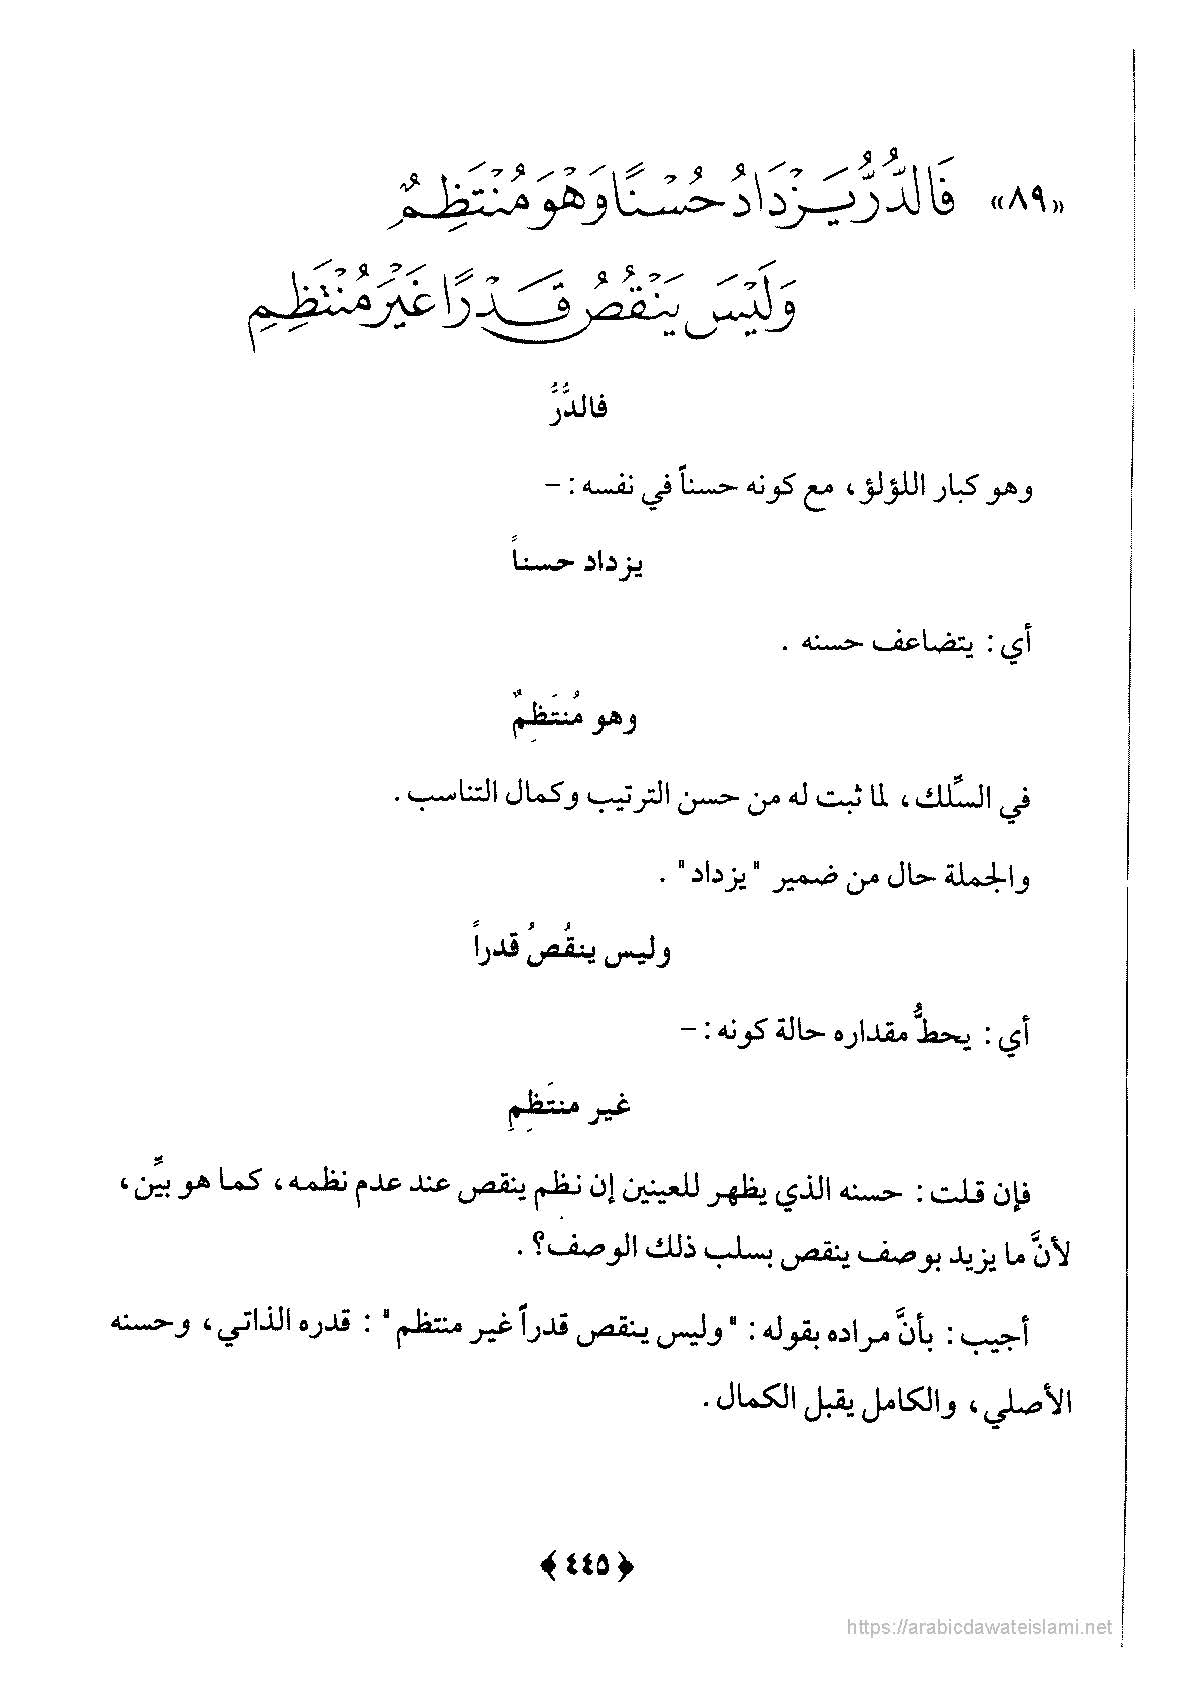 «٨٩» فَالدُّرُّ يَزْدَادُ حُسْنًا وَهْوَ مُنْتَظِمٌ
وَلَيْسَ يَنْقُصُ قَدْرًا غَيْرَ مُنْتَظِمِ
فالدُّرُّ
وهو كبار اللؤلؤ، مع كونه حسناً في نفسه: –
يزداد حسناً
أي: يتضاعف حسنه .
وهو مُنتَظِمٌ
في السِّلك، لما ثبت له من حسن الترتيب وكمال التناسب .
والجملة حال من ضمير "يزداد" .
وليس ينقُصُ قدراً
أي: يحطُّ مقداره حالة كونه: –
غير منتَظِمِ
فإن قلت: حسنه الذي يظهر للعينين إن نظم ينقص عند عدم نظمه، كما هو بيِّن،
لأنَّ ما يزيد بوصف ينقص بسلب ذلك الوصف؟ .
أجيب: بأنَّ مراده بقوله: "وليس ينقص قدراً غير منتظم": قدره الذاتي، وحسنه
الأصلي، والكامل يقبل الكمال .
﴿ ٤٤٥ ﴾
https://arabicdawateislami.net